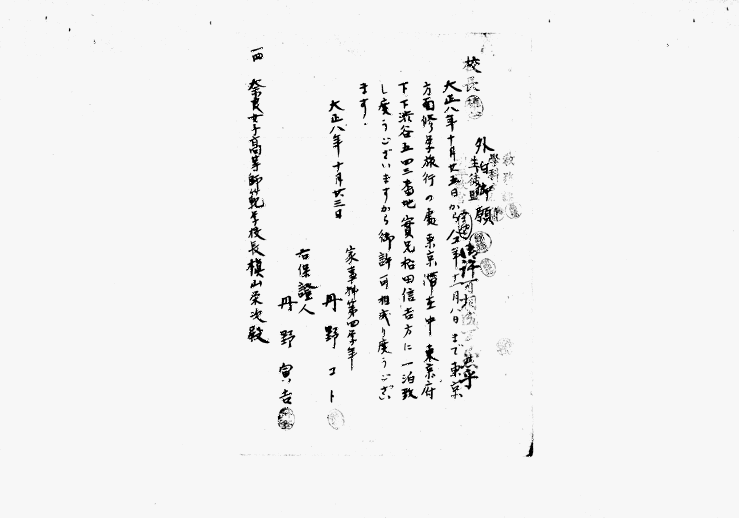 校長
外泊御願
大正八年十月廿五日から仝年十一月八日まで東京
方面修学旅行の處東京滞在中東京府
下下渋谷五四三番地實兄松田信吉方に一泊致
し度うございますから御許可相成り度うござい
ます。
大正八年十月廿三日
家事科第四学年
丹野コト
右保證人
丹野寅吉
奈良女子高等師範学校長槇山栄次殿